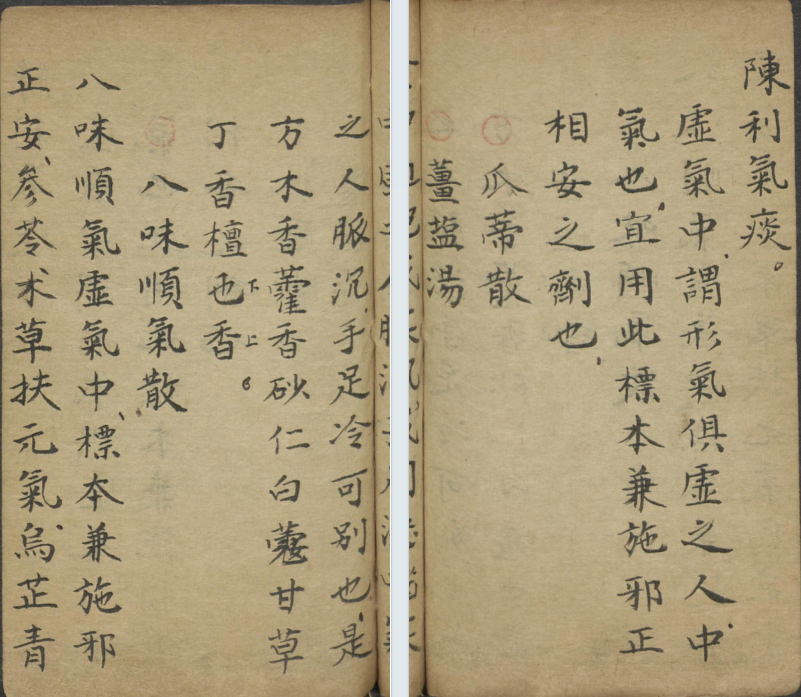 陳利氣痰
虛氣中謂形氣俱虛之人中
氣也宜用此標本兼施邪正
相安之劑也
瓜蒂散
薑盐湯
之人脈沉手足冷可別也是
方木香藿香砂仁白蔻甘草
丁香檀也下香上
八味順氣散
八味順氣虛氣中標本兼施邪
正安參苓朮草扶元氣烏芷青